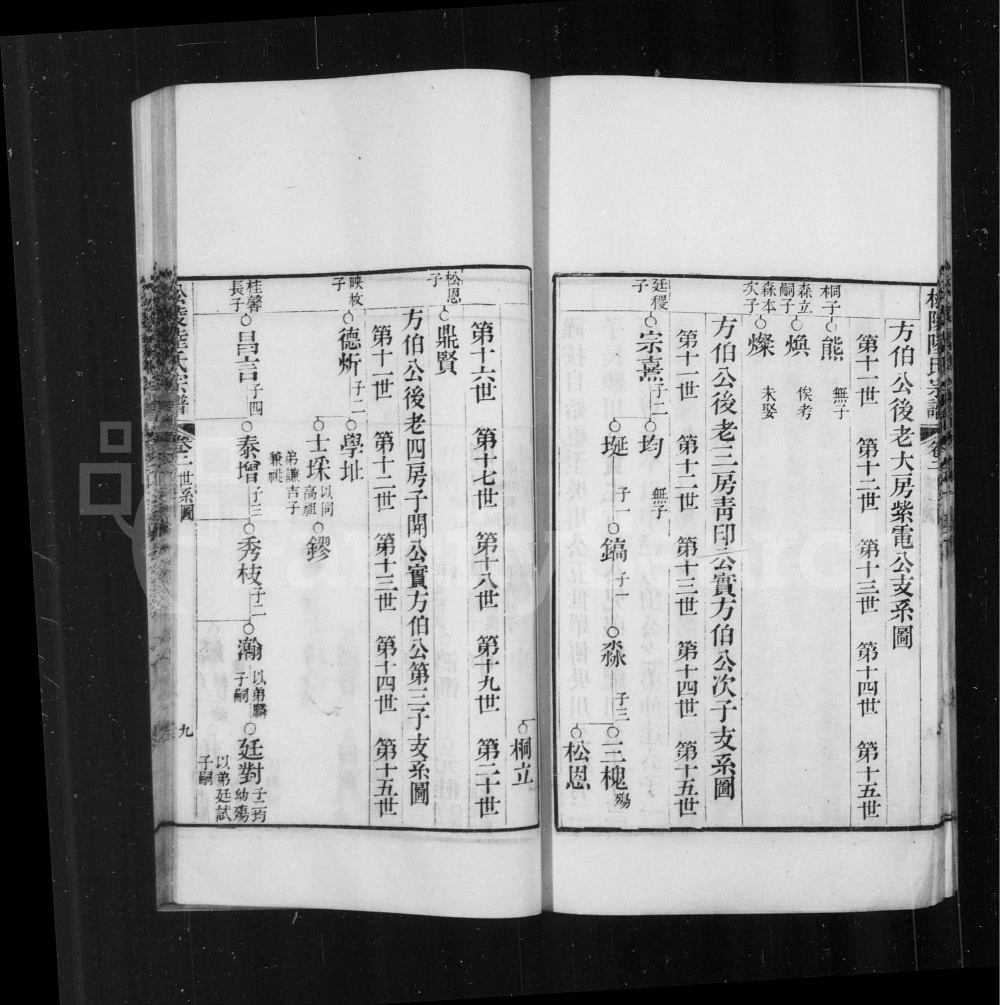 方伯公後老大房紫電公支系圖
第十一世 第十二世 第十三世 第十四世 第十五世
桐子 熊 無子
森立嗣子 煥 俟考
森本次子 燦 未娶
方伯公後老三房青印公實方伯公次子支系圖
第十一世 第十二世 第十三世 第十四世 第十五世
廷稷子 宗熹 子二 均 無子
埏 子一 鎬 子一 淼 子三 三槐 殤
松恩
桐立
第十六世 第十七世 第十八世 第十九世 第二十世
松恩子 鼎賢
方伯公後老四房子開公實方伯公第三子支系圖
第十一世 第十二世 第十三世 第十四世 第十五世
映枚子 德炘 子二 學址
士埰 以同高祖弟謙吉子兼祧 鏐
桂馨長子 昌言 子四 泰增 子三 秀枝 子二 瀚 以弟麟子嗣 廷對 子二均幼殤以弟廷試子嗣
陸氏宗譜 卷二 世系圖 九